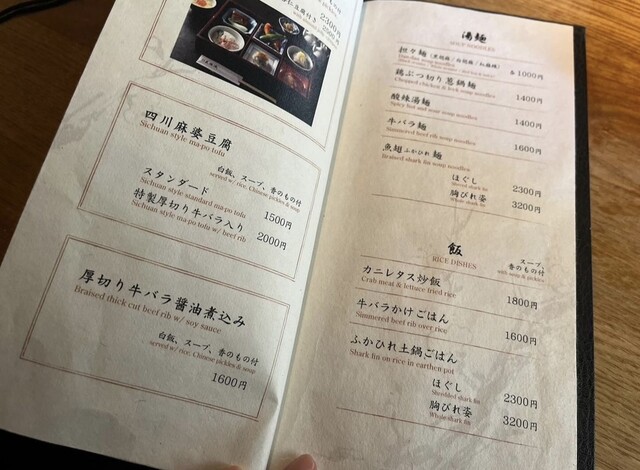 2300円
四川麻婆豆腐
Sichuan style ma-po tofu
白飯、スープ、香のもの付
served w/ rice, Chinese pickles & soup
スタンダード
Sichuan style standard ma-po tofu
1500円
特製厚切り牛バラ入り
Sichuan style ma-po tofu w/ beef rib
2000円
厚切り牛バラ醤油煮込み
Braised thick cut beef rib w/ soy sauce
白飯、スープ、香のもの付
served w/ rice, Chinese pickles & soup
1600円
湯麺
SOUP NOODLES
担々麺
各1000円
鶏ぶつ切り葱鍋麺
Chopped chicken & leek soup noodles
1400円
酸辣湯麺
Spicy hot and sour soup noodles
1400円
牛バラ麺
Simmered beef rib soup noodles
1600円
魚翅ふかひれ麺
Braised shark fin soup noodles
ほぐし
2300円
胸びれ姿
3200円
飯
RICE DISHES
スープ、
香のもの付
with soup & pickles
カニレタス炒飯
Crab meat & lettuce fried rice
1800円
牛バラかけごはん
Simmered beef rib over rice
1600円
ふかひれ土鍋ごはん
Shark fin on rice in earthen pot
ほぐし
Shredded shark fin
2300円
胸びれ姿
Whole shark fin
3200円